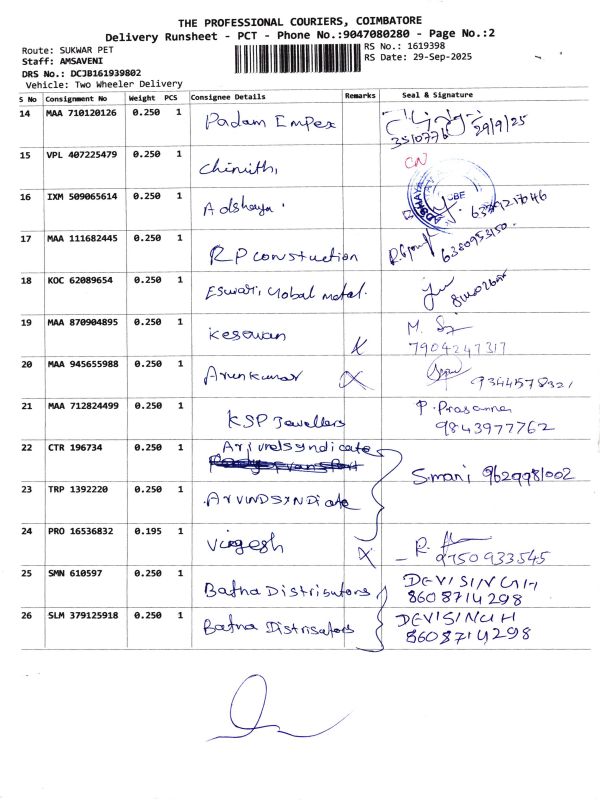 THE PROFESSIONAL COURIERS, COIMBATORE
Delivery Runsheet - PCT - Phone No.:9047080280 - Page No.:2
Route: SUKWAR PET
RS No.: 1619398
Staff: AMSAVENI
RS Date: 29-Sep-2025
DRS No.: DCJB161939802
Vehicle: Two Wheeler Delivery
S No Consignment No Weight PCS Consignee Details Remarks Seal & Signature
14 MAA 710120126 0.250 1 Padam Empex 29/9/25
15 VPL 407225479 0.250 1 CN
16 IXM 509065614 0.250 1 Adshaya
17 MAA 111682445 0.250 1 R.P constuction 6380953150
18 KOC 62089654 0.250 1 Eswari, Global metal.
19 MAA 870904895 0.250 1 Kesavan M. 7904247317
20 MAA 945655988 0.250 1 Arunkumar 9344578321
21 MAA 712824499 0.250 1 KSP Jewellers P. Prasanna
9843977762
22 CTR 196734 0.250 1 Arjundsyndicate
S.mani 9629981002
23 TRP 1392220 0.250 1 ArVINDSYNDicate
24 PRO 16536832 0.195 1 Viegesh X R. 9750933545
25 SMN 610597 0.250 1 Bafna Distributors DEVISINGH
8608714298
26 SLM 379125918 0.250 1 Bafna Distrisators DEVISINGH
8608714298